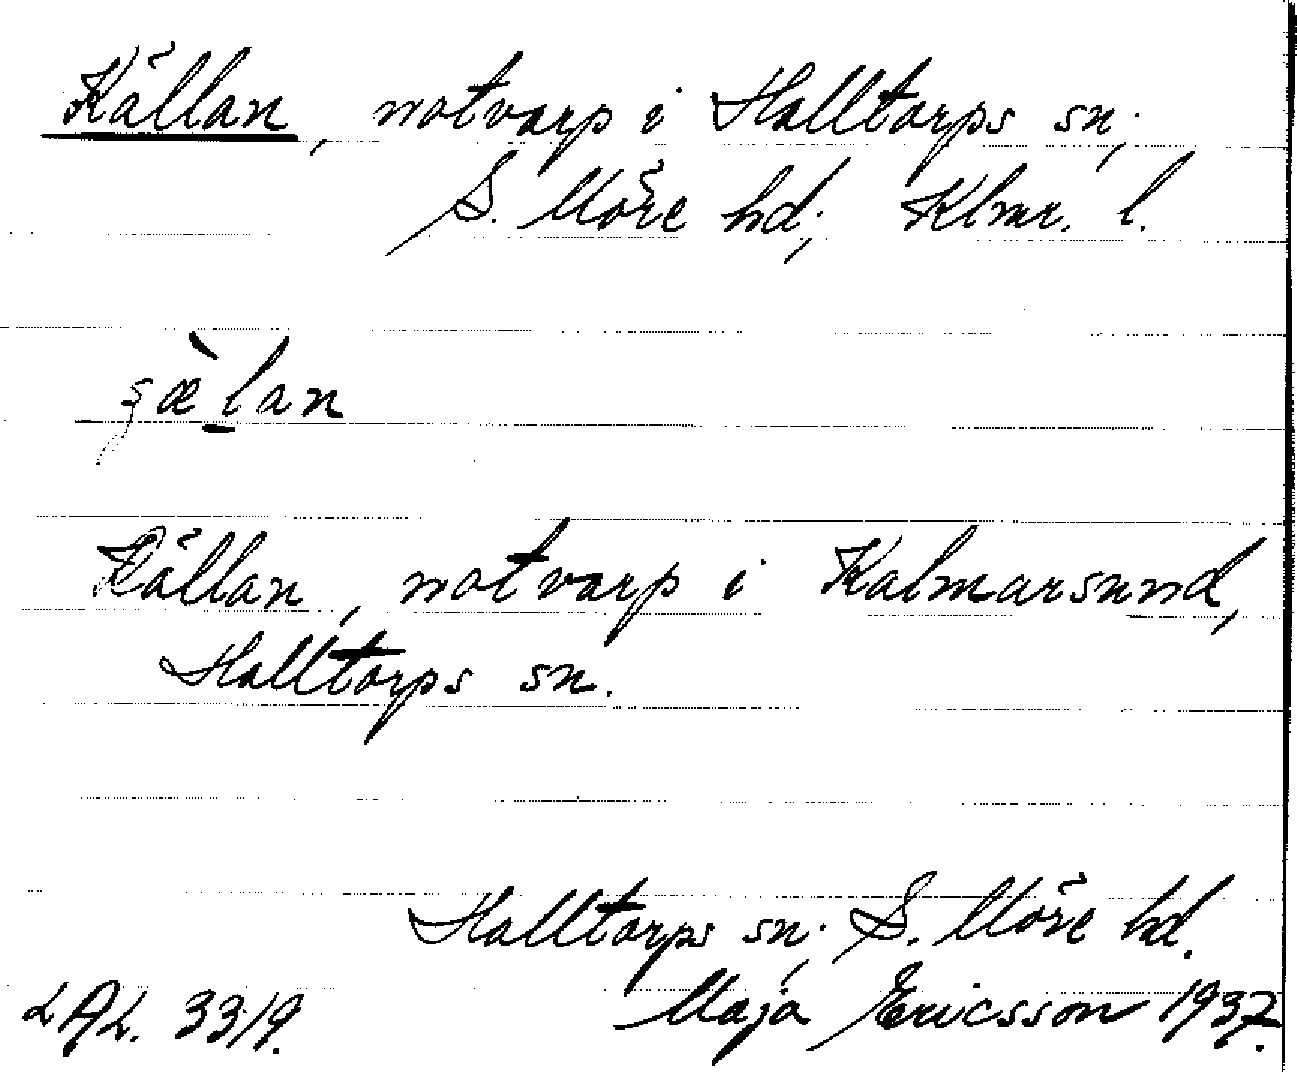 Källan, notvarp i Halltorps sn;
S. Möre hd; Klmr. l.
Källan, notvarp i Kalmarsund,
Halltorps sn.
Halltorps sn; S. Möre hd.
LAL. 3319. Maja Ericsson 1937.